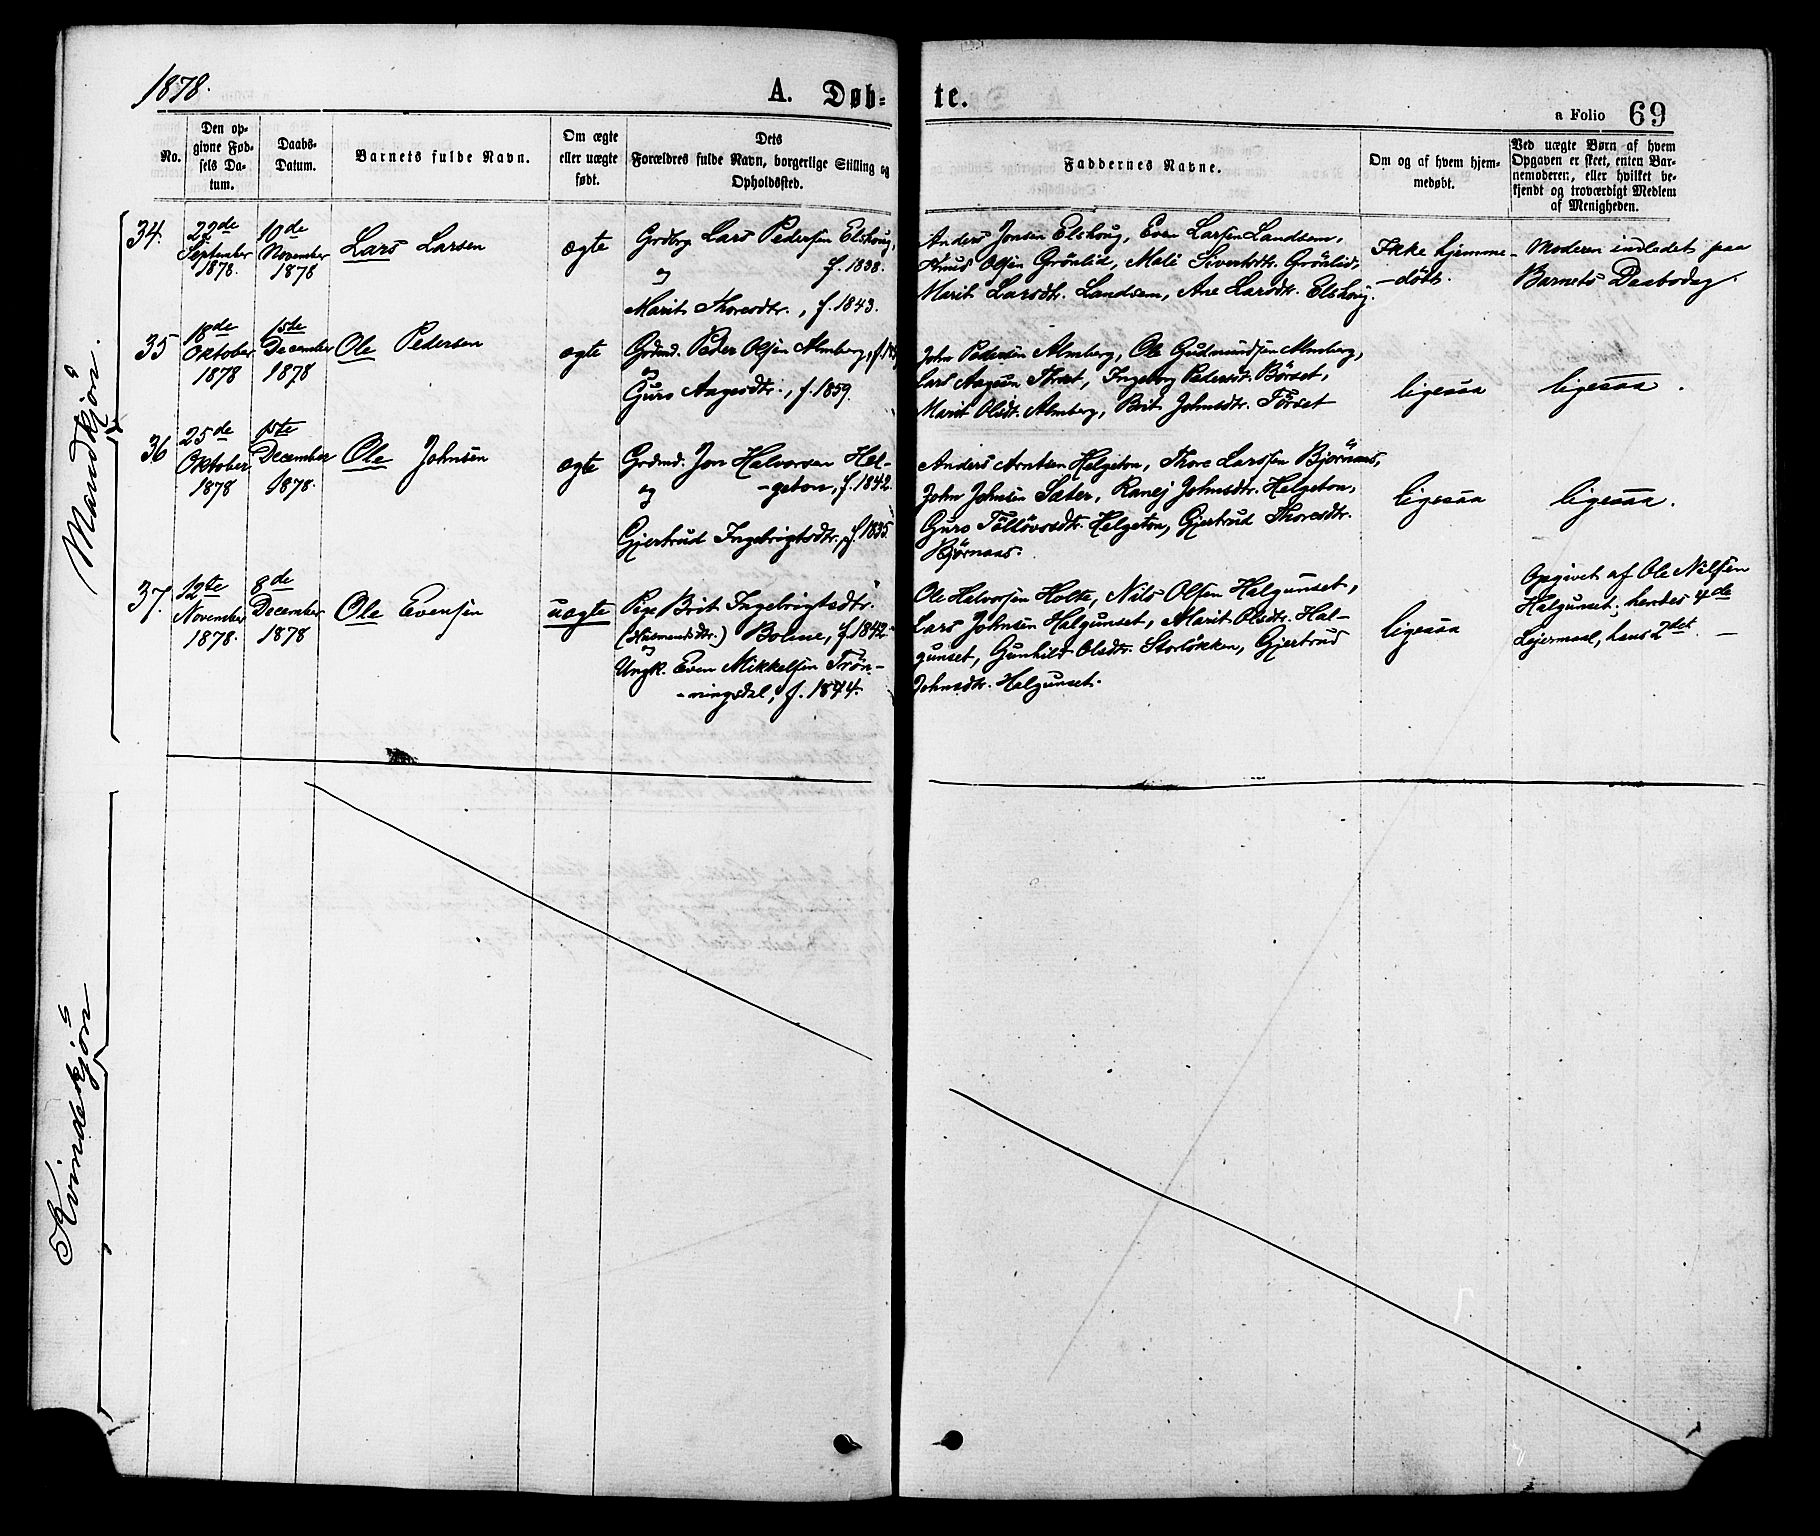 1878.
A. Døb-
te.
a Folio 69
No.
Den op-
givne Fød-
sels Da-
tum.
Daabs-
Datum.
Barnets fulde Navn.
Om ægte
eller uægte
født.
Dets
Forældres fulde Navn, borgerlige Stilling og
Opholdssted.
Faddernes Navne.
Om og af hvem hjem-
medøbt.
Ved uægte Børn af hvem
Opgaven er skeet, enten Bar-
nemoderen, eller hvilket be-
kjendt og troværdigt Medlem
af Menigheden.
Mandkjøn.
34.
22de
September
1878.
10de
November
1878
Lars Larsen
ægte
Grdbrg. Lars Pedersen Elshoug,
f. 1838.
og
Marit Thoresdtr., f. 1843.
Anders Jonsen Elshoug, Even Larsen Landsem,
Knud Olsen Grönlid, Mali Sivertsdtr. Grönlid,
Marit Larsdtr. Landsem, Ane Larsdtr. Elshoug.
Ikke hjemme-
-döbt.
Moderen indledet paa
Barnets Daabsdag.
35
18de
Oktober
1878
1ste
December
1878
Ole Pedersen
ægte
Grdmd. Peder Olsen Almberg,
og
Guro Aagesdtr., f. 1859.
John Pedersen Almberg, Ole Gudmundsen Almberg,
Lars Aagesen Thræt, Ingeborg Pedersdt. Börset,
Marit Olsdt. Almberg, Brit Johnsdtr. Törset
ligesaa
ligesaa.
36
25de
Oktober
1878
1ste
December
1878.
Ole Johnsen
ægte
Grdmd. Jon Halvorsen Hel-
-geton, f. 1842.
og
Gjertrud Ingebrigtsdtr., f. 1835.
Anders Arntsen Helgeton, Thore Larssen Björnaas,
John Johnsen Sæter, Ranej Johnsdtr. Helgeton,
Guro Töllövsdtr. Helgeton, Gjertrud Thoresdtr.
Björnaas.
ligesaa
ligesaa.
37.
12te
November
1878.
8de
December
1878
Ole Evensen
uægte
Pige Brit Ingebrigtsdtr.
(Husmandsdtr.) Bolme, f. 1842
og
Ungk. Even Mikkelsen Trön-
-ningsdal, f. 1844.
Ole Halvorsen Holte, Nils Olsen Halgunset,
Lars Johnsen Halgunset, Marit Olsdtr. Hal-
gunset, Gunhild Olsdtr. Storløkken, Gjertrud
Johnsdtr. Halgunset.
ligesaa
Opgivet af Ole Nilsen
Halgunset; hendes 4de
Leiermaal, hans 2det.
Kvindekjøn